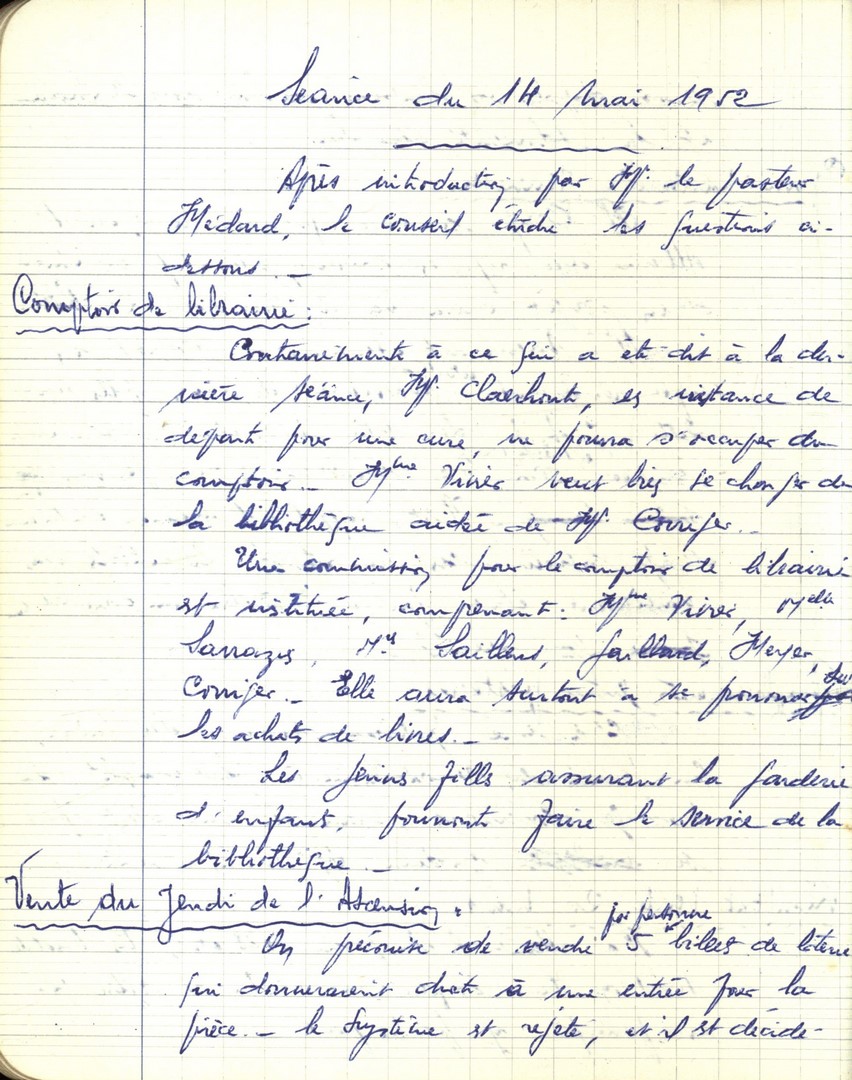 Séance du 14 Mai 1952
Après introduction par M. le pasteur
Médard, le conseil étudie les questions ci-
dessous. _
Comptoir de librairie :
Contrairement à ce qui a été dit à la der-
nière séance, M. Claerhout, en instance de
départ pour une cure, ne pourra s'occuper du
comptoir _ Mme Vivier veut bien se charger de
la bibliothèque aidée de M. Corriger _
Une commission pour le comptoir de librairie
est instituée, comprenant : Mme Vivier, Melle
Sarrazin, Mrs Saillens, Gaillard, Meyer,
Corriger _ Elle aura surtout à se prononcer sur
les achats de livres _
Les jeunes filles assurant la garderie
d'enfants, pourront faire le service de la
bibliothèque _
Vente du Jeudi de l'Ascension :
par personne
On préconise de vendre 5 billets de loterie
qui donneraient droit à une entrée pour la
pièce _ le système est rejeté, et il est décidé